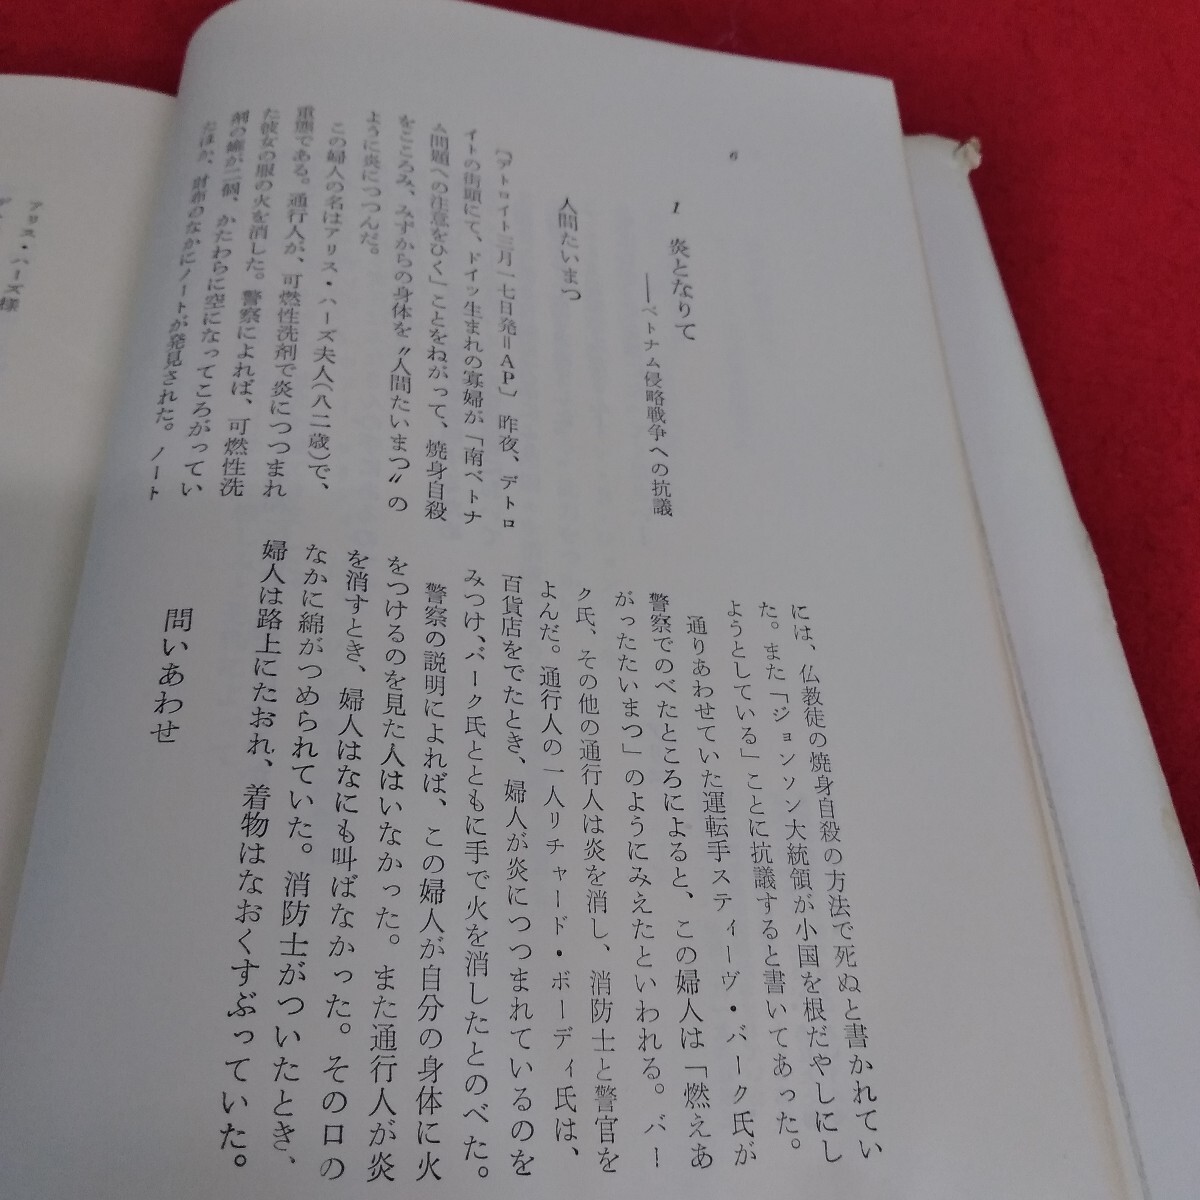 6
1 炎となりて
――ベトナム侵略戦争への抗議
人間たいまつ
〔デトロイト三月一七日発＝AP〕 昨夜、デトロ
イトの街頭にて、ドイツ生まれの寡婦が「南ベトナ
ム問題への注意をひく」ことをねがって、焼身自殺
をこころみ、みずからの身体を〝人間たいまつ〟の
ように炎につつんだ。
この婦人の名はアリス・ハーズ夫人（八二歳）で、
重態である。通行人が、可燃性洗剤で炎につつまれ
た彼女の服の火を消した。警察によれば、可燃性洗
剤の罐が二個、かたわらに空になってころがってい
たほか、財布のなかにノートが発見された。ノート
には、仏教徒の焼身自殺の方法で死ぬと書かれてい
た。また「ジョンソン大統領が小国を根だやしにし
ようとしている」ことに抗議すると書いてあった。
通りあわせていた運転手スティーヴ・バーク氏が
警察でのべたところによると、この婦人は「燃えあ
がったたいまつ」のようにみえたといわれる。バー
ク氏、その他の通行人は炎を消し、消防士と警官を
よんだ。通行人の一人リチャード・ボーディ氏は、
百貨店をでたとき、婦人が炎につつまれているのを
みつけ、バーク氏とともに手で火を消したとのべた。
警察の説明によれば、この婦人が自分の身体に火
をつけるのを見た人はいなかった。また通行人が炎
を消すとき、婦人はなにも叫ばなかった。その口の
なかに綿がつめられていた。消防士がついたとき、
婦人は路上にたおれ、着物はなおくすぶっていた。
問いあわせ
アリス・ハーズ様